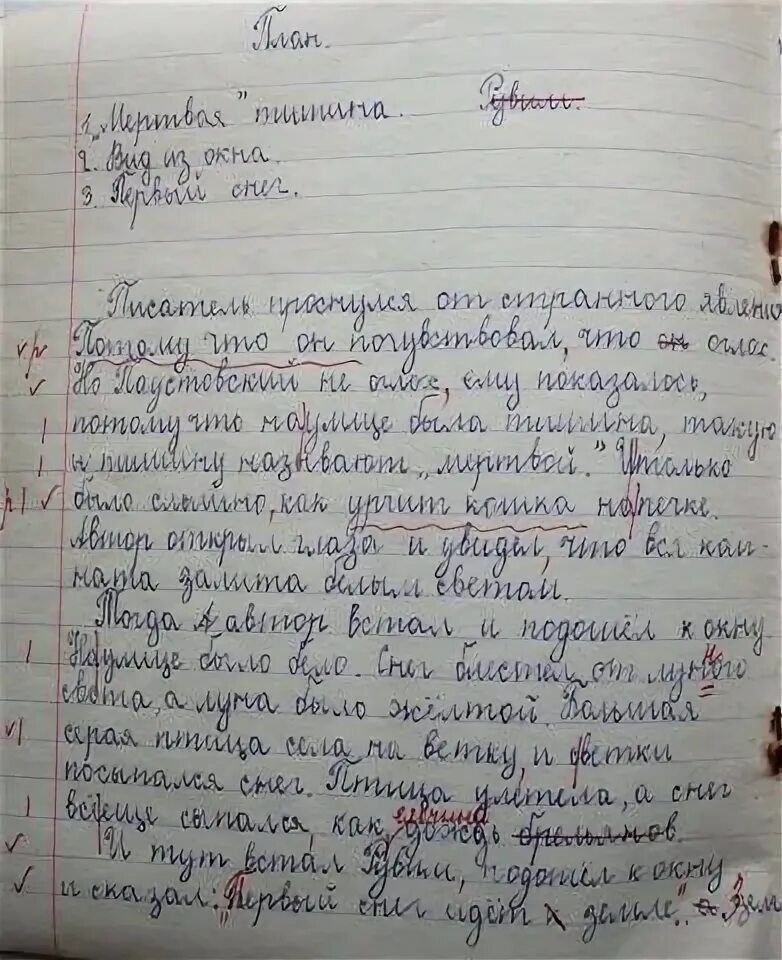 План.
1. „Мертвая" тишина. Рувим.
2. Вид из окна.
3. Первый снег.
Писатель проснулся от странного явлени
Потому что он почувствовал, что он оглох.
Но Паустовский не оглох, ему показалось,
потому что на улице была тишина, такую
тишину называют „мертвой." И только
было слышно, как урчит кошка на печке.
Автор открыл глаза и увидел, что вся ком-
ната залита белым светом.
Тогда автор встал и подошёл к окну.
На улице было бело. Снег блестел от лунного
света, а луна было жёлтой. Большая
серая птица села на ветку, и с ветки
посыпался снег. Птица улетела, а снег
всё еще сыпался, как дождь
И тут встал Рувим, подошёл к окну
и сказал: "Первый снег идёт к земле".